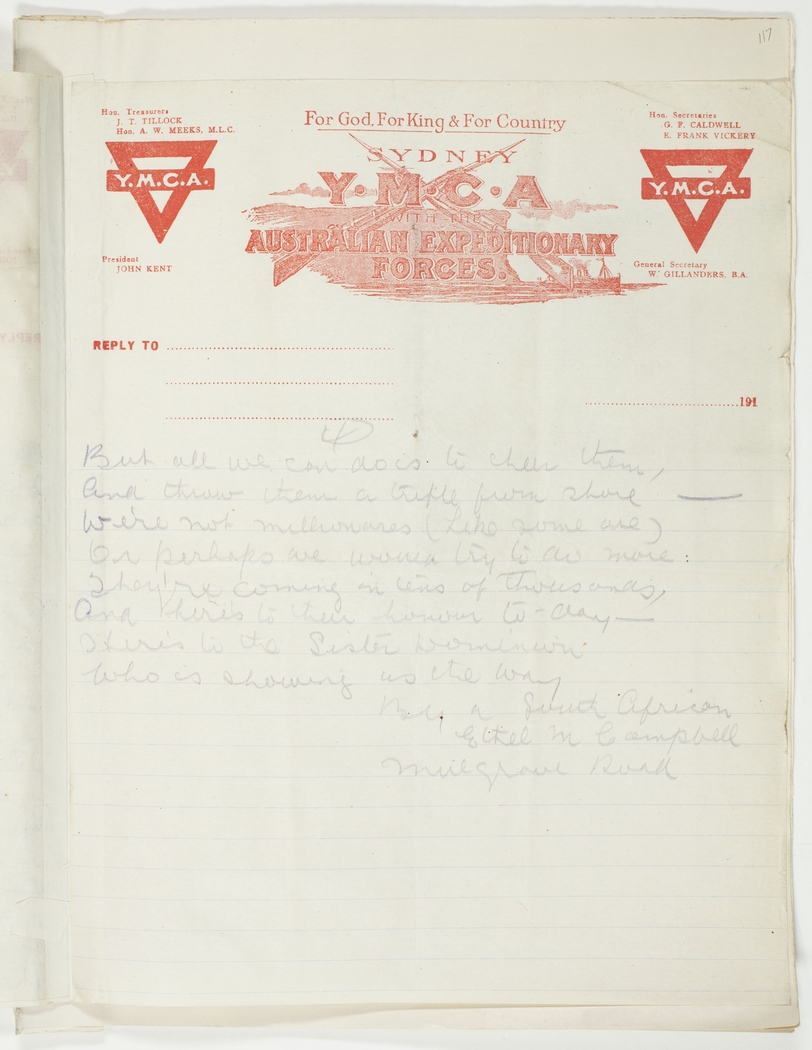 117
Hon. Treasurers
J. T. TILLOCK
Hon. A. W. MEEKS, M.L.C.
Y.M.C.A.
President
JOHN KENT
For God, For King & For Country
SYDNEY
Y·M·C·A
WITH THE
AUSTRALIAN EXPEDITIONARY
FORCES.
Hon. Secretaries
G. F. CALDWELL
E. FRANK VICKERY
Y.M.C.A.
General Secretary
W. GILLANDERS, B.A.
REPLY TO
191
4
But all we can do is to cheer them,
And throw them a trifle from shore —
We're not millionares (Like some are)
Or perhaps we would try to do more:
They're coming in tens of thousands,
And here's to their honour to-day —
Here's to the Sister Dominion
Who is showing us the way
By a South African
Ethel M Campbell
Road